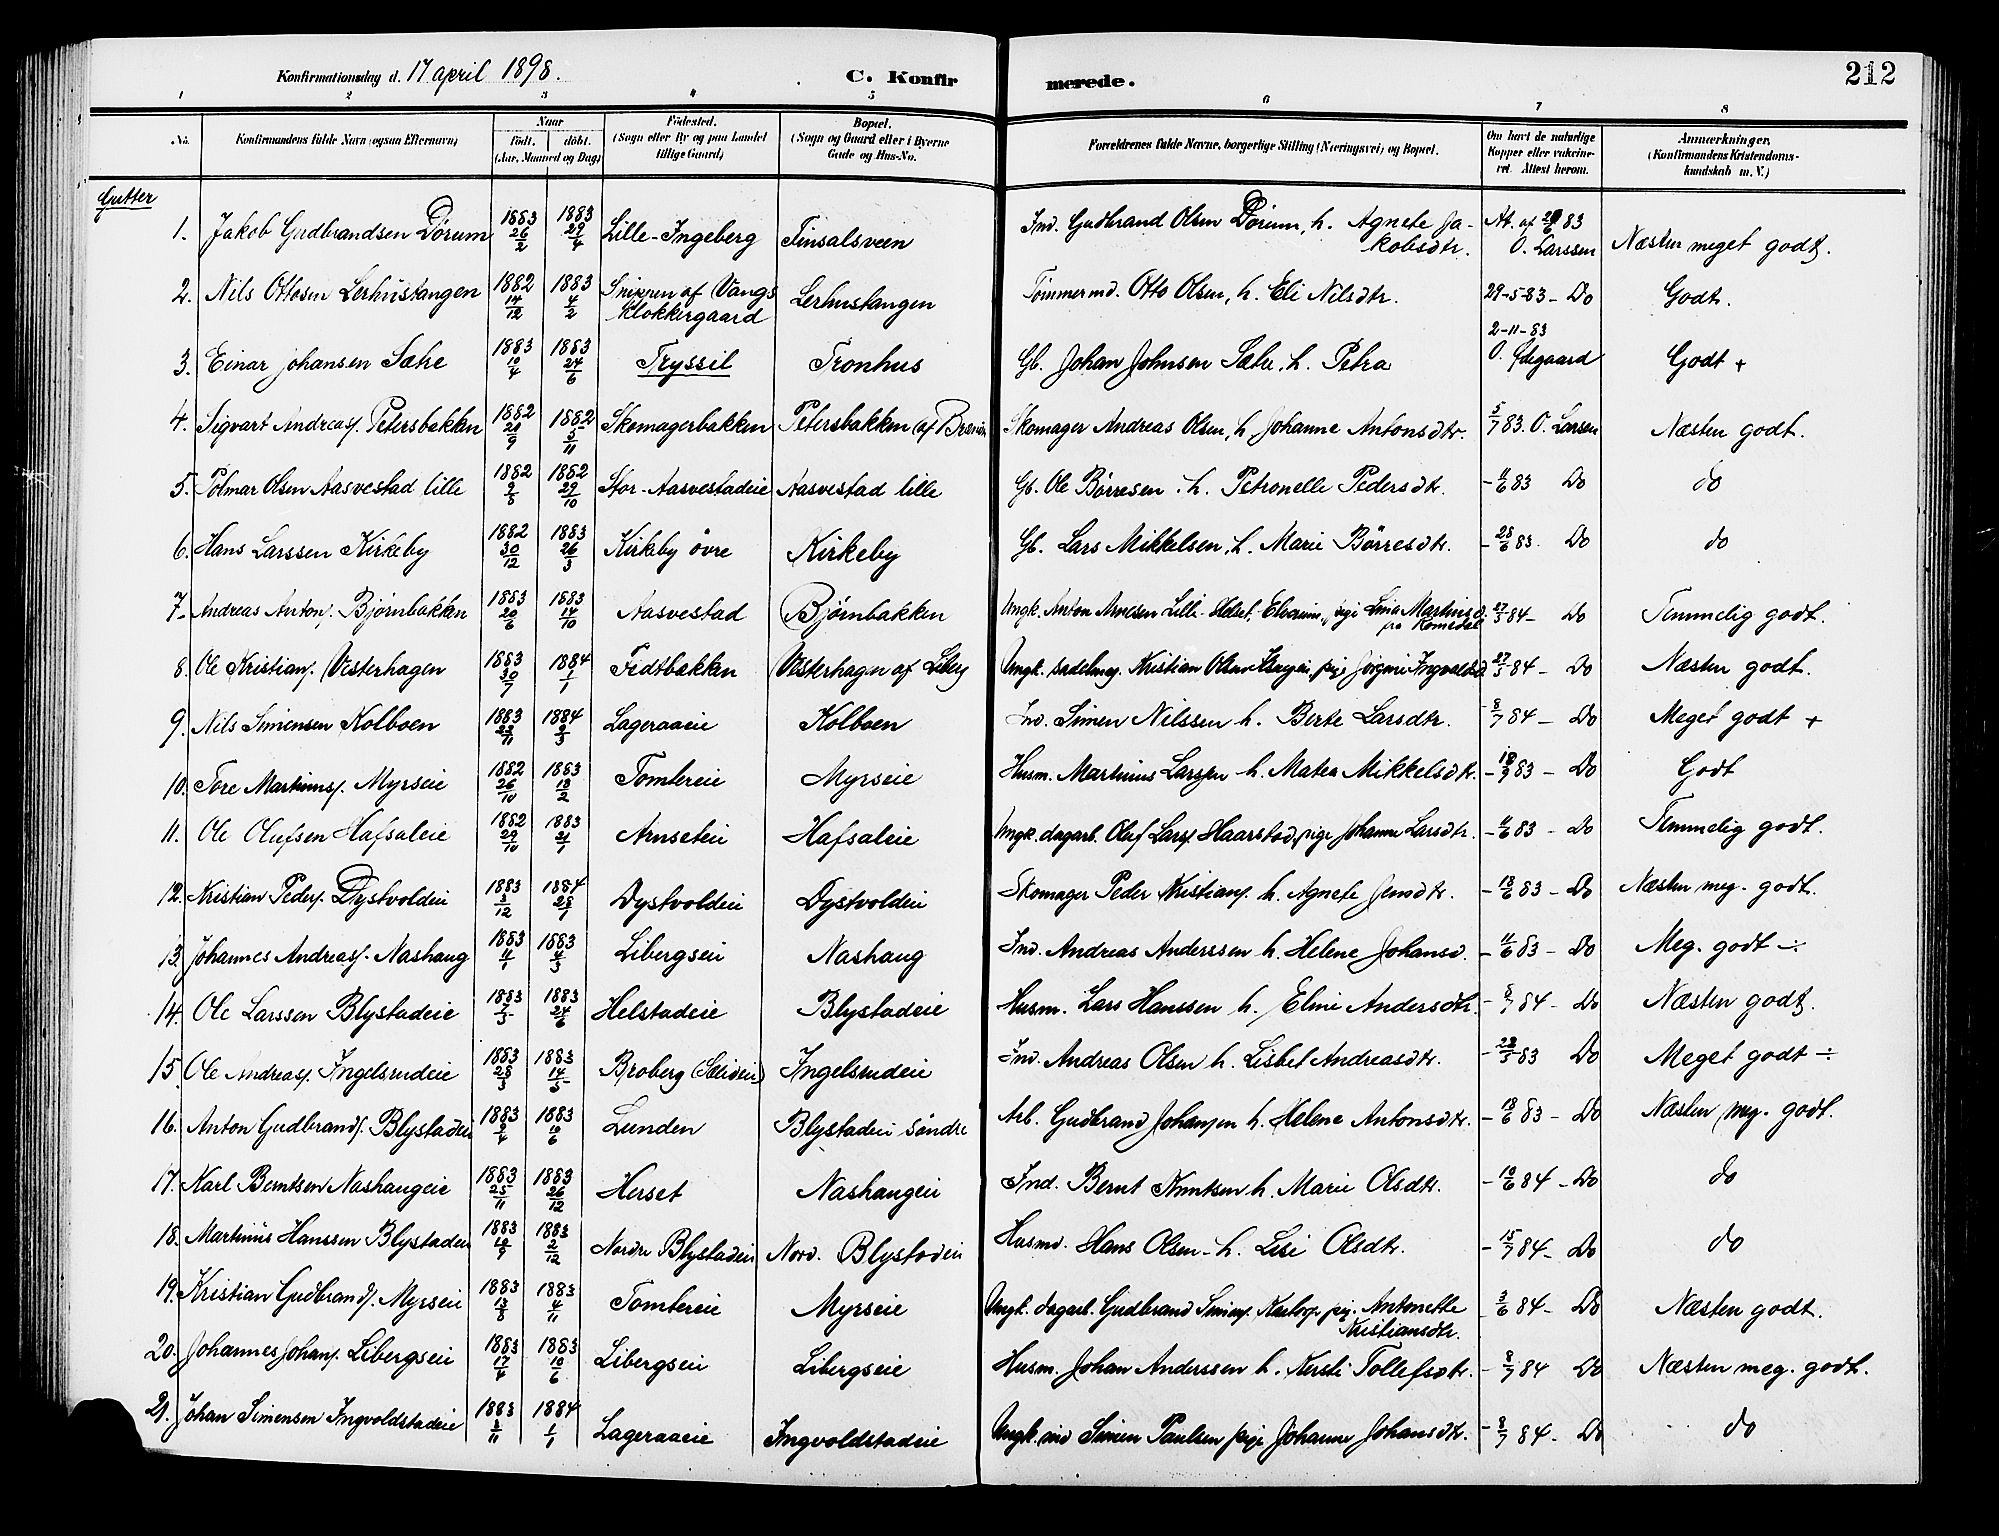 Konfirmationsdag d. 17 april 1898. C. Konfir merede. 212
1 2 3 4 5 6 7 8
No. Konfirmandens fulde Navn (ogsaa Efternavn) Naar født. døbt. (Aar, Maaned og Dag) Födested. (Sogn eller By og paa Landet tillige Gaard) Bopæl. (Sogn og Gaard eller i Byerne Gade og Hus-No. Forældrenes fulde Navne, borgerlige Stilling (Næringsvei) og Bopæl. Om havt de naturlige Kopper eller vaksineret. Attest herom. Anmærkninger. (Konfirmandens Kristendomskundskab m. V.)
Gutter
1. Jakob Gudbrandsen Dørum 1883 26/2 1883 29/4 Lille-Ingeberg Finsalsveen Ind. Gudbrand Olsen Dørum, h. Agnete Jakobsdtr. At. af 83 O. Larssen Næsten meget godt.
2. Nils Ottosen Lerhustangen 1882 14/12 1883 4/2 Snippen af Vangs Klokkergaard Lerhustangen Tømmermd. Otto Olsen, h. Eli Nilsdtr. 29-5-83- Do Godt.
3. Einar Johansen Sæhre 1883 10/4 1883 24/6 Tryssil Tronhus Gb. Johan Johnsen Sæhre, h. Petra 2-11-83 O. Ødegaard Godt +
4. Sigvart Andreass. Petersbakken 1882 20/9 1882 5/11 Skomagerbakken Petersbakken af Skomager Andreas Olsen, h Johanne Antonsdtr. 5/7 83. O. Larsen Næsten godt.
5. Polmar Olsen Aasvestad lille 1882 9/8 1882 29/10 Stor-Aasvestadeie Aasvestad lille Gb. Ole Børresen. h. Petronelle Pedersdtr. - 11/6 83 Do do
6. Hans Larssen Kirkeby 1882 30/12 1883 26/3 Kirkeby øvre Kirkeby Gb. Lars Mikkelsen, h. Marie Børresdtr. - 28/6 83. Do do
7. Andreas Antons. Bjørnbakken 1883 20/6 1883 14/10 Aasvestad Bjørnbakken Ungk. Anton Arnesen Lille-Helset, Elverum, pige Lina Martinsd. fra Romedal 27/5 84- Do Temmelig godt.
8. Ole Kristians. Vesterhagen 1883 30/7 1884 1/1 Fedtbakken Vesterhagen af Liberg Ungk. sadelmag. Kristian Olsen pige Jørgine Ingvaldsd. 27/5 84- Do Næsten godt.
9. Nils Simensen Kolboen 1883 23/11 1884 9/3 Lageraaeie Kolboen Ind. Simen Nilssen h. Berte Larsdtr. 8/7 84- Do Meget godt +
10. Tore Martinus. Myrseie 1882 26/10 1883 18/2 Tomtereie Myrseie Husm. Martinus Larssen h. Matea Mikkelsdtr. - 18/9 83- Do Godt
11. Ole Olufsen Hafsaleie 1882 29/10 1883 21/1 Arnseteie Hafsaleie Ungk. dagarb. Oluf Larss. Haarstad, pige Johanne Larsdtr. - 11/6 83- Do Temmelig godt.
12. Kristian Peders. Dystvoldeie 1883 3/12 1884 28/1 Dystvoldeie Dystvoldeie Skomager Peder Kristians. h. Agnete Jensdtr. - 18/6 83- Do Næsten meg. godt.
13. Johannes Andreass. Nashaug 1883 11/1 1883 4/3 Libergseie Nashaug Ind. Andreas Anderssen h. Helene Johansd. - 11/6 83- Do Meg. godt ÷
14. Ole Larssen Blystadeie 1883 7/5 1883 24/6 Helstadeie Blystadeie Husm. Lars Hanssen h. Eline Andersdtr. - 8/7 84- Do Næsten godt.
15. Ole Andreass. Ingelsrudeie 1883 28/3 1883 14/5 Broberg (Sælideie) Ingelsrudeie Ind. Andreas Olsen h. Lisbet Andreasdtr. - 28/5 83 Do Meget godt ÷
16. Anton Gudbrands. Blystadeie 1883 9/4 1883 10/6 Lunden Blystadeie søndre Arb. Gudbrand Johansen h. Helene Antonsdtr. - 18/6 83- Do Næsten meg. godt.
17. Karl Berntsen Nashaugeie 1883 25/11 1883 26/12 Herset Nashaugeie Ind. Bernt Knutsen h. Marie Olsdtr. - 10/6 84- Do do
18. Martinus Hanssen Blystadeie 1883 19/9 1883 2/12 Nordre Blystadeie Nord. Blystadeie Husmd. Hans Olsen- h. Lisi Olsdtr. - 15/7 84- Do do
19. Kristian Gudbrands. Myrseie 1883 13/8 1883 4/11 Tomtereie Myrseie Ungk. dagarb. Gudbrand Simens. pig. Antonette Kristiansdtr. - 3/6 84- Do Næsten godt.
20. Johannes Johans. Libergseie 1883 17/4 1883 10/6 Libergseie Libergseie Husm. Johan Anderssen h. Kersti Tollefsdtr. - 8/7 84 Do Næsten meg. godt.
21. Johan Simensen Ingvoldstadeie 1883 3/11 1884 1/1 Lageraaeie Ingvoldstadeie Ungk. ind Simen Paulsen pige Johanne Johansdtr. - 8/7 84- Do do